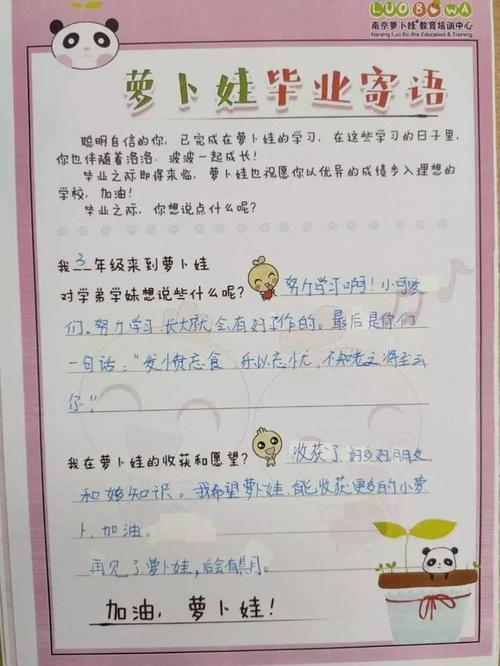 LUO BO WA
南京萝卜娃®教育培训中心
Nanjing Luo Bo Wa Education & Training
萝卜娃毕业寄语
聪明自信的你，已完成在萝卜娃的学习，在这些学习的日子里，
你也伴随着洛洛、波波一起成长！
毕业之际即将来临，萝卜娃也祝愿你以优异的成绩步入理想的
学校，加油！
毕业之际，你想说点什么呢？
我3年级来到萝卜娃
对学弟学妹想说些什么呢？ 努力学习啊！小可爱
们，努力学习长大就会有好工作的。最后是你们
一句话：“发愤忘食，乐以忘忧，不知老之将至云
尔”
我在萝卜娃的收获和愿望？ 收获了好多好朋友
和知识。我希望萝卜娃，能收获更多的小萝
卜，加油。
再见了萝卜娃，后会有期。
加油，萝卜娃！